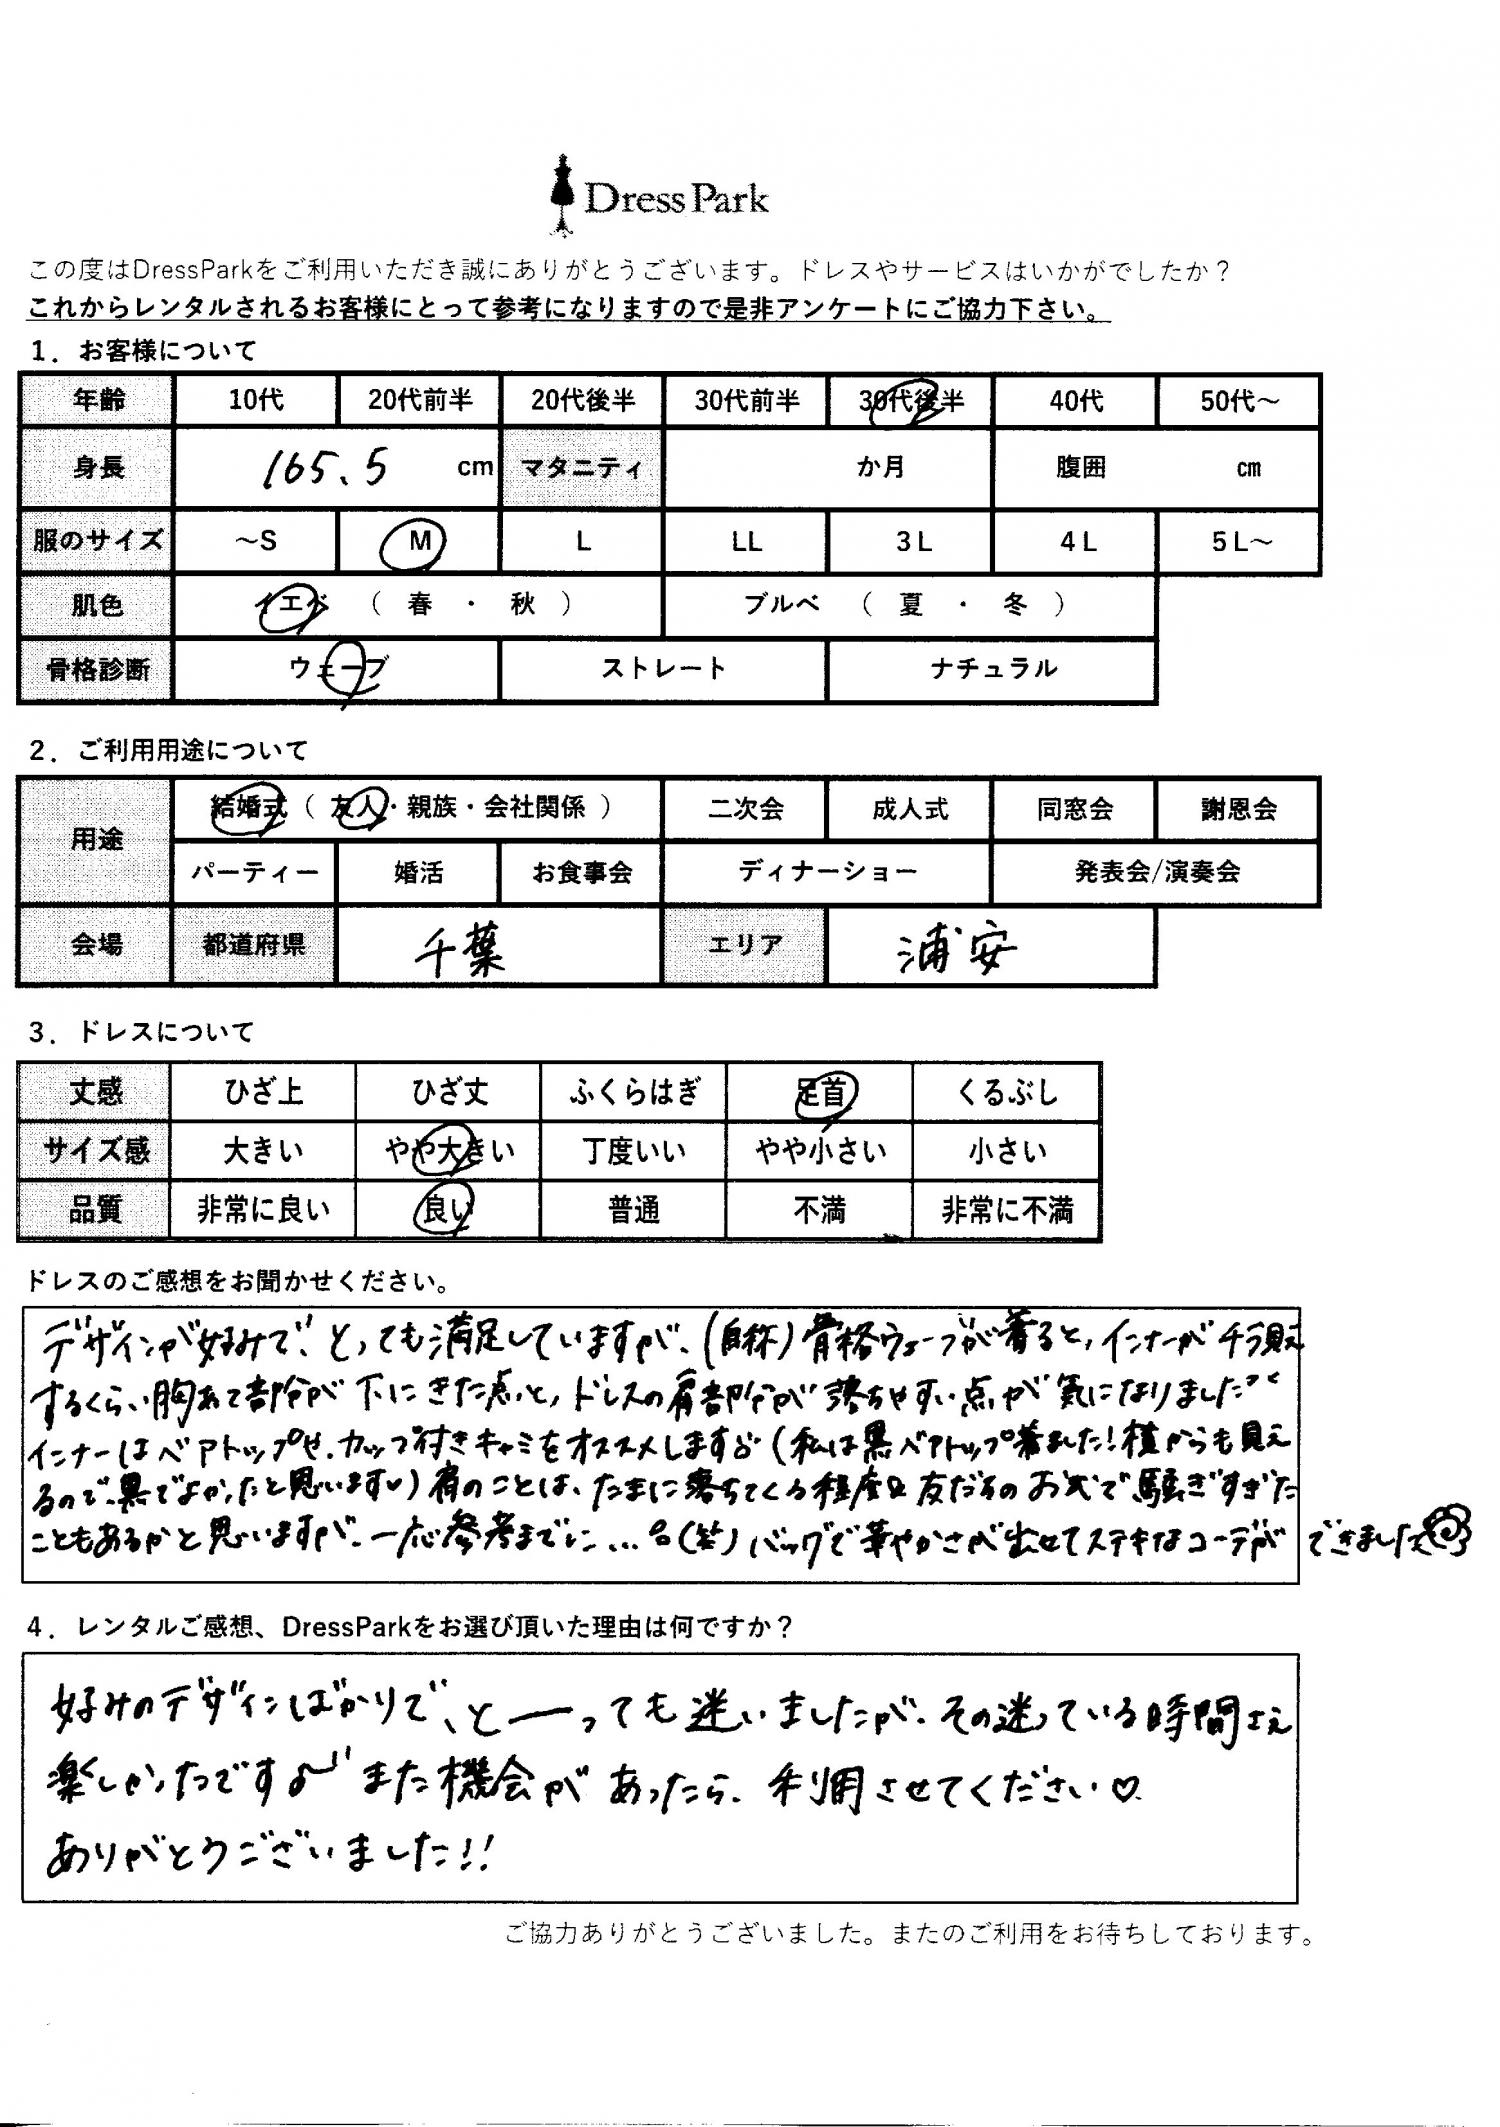 Dress Park
この度はDressParkをご利用いただき誠にありがとうございます。ドレスやサービスはいかがでしたか？
これからレンタルされるお客様にとって参考になりますので是非アンケートにご協力下さい。
1．お客様について
年齢 10代 20代前半 20代後半 30代前半 30代後半 40代 50代～
身長 165.5 cm マタニティ か月 腹囲 cm
服のサイズ ～S M L LL 3L 4L 5L～
肌色 イエベ （ 春 ・ 秋 ） ブルベ （ 夏 ・ 冬 ）
骨格診断 ウェーブ ストレート ナチュラル
2．ご利用用途について
用途 結婚式（ 友人・親族・会社関係 ） 二次会 成人式 同窓会 謝恩会
パーティー 婚活 お食事会 ディナーショー 発表会/演奏会
会場 都道府県 千葉 エリア 浦安
3．ドレスについて
丈感 ひざ上 ひざ丈 ふくらはぎ 足首 くるぶし
サイズ感 大きい やや大きい 丁度いい やや小さい 小さい
品質 非常に良い 良い 普通 不満 非常に不満
ドレスのご感想をお聞かせください。
デザインが好みで、とっても満足していますが、(自称)骨格ウェーブが着ると、インナーがチラ見え
するくらい胸あて部分が下にきた点と、ドレスの肩部分が落ちやすい点が気になりました
インナーはベアトップや、カップ付きキャミをオススメします(私は黒ベアトップ着ました!横からも見え
るので、黒でよかったと思います♡)肩のことは、たまに落ちてくる程度&友だちのお式で騒ぎすぎた
こともあるかと思いますが、一応参考までに…。(笑)バッグで華やかさが出せてステキなコーデができました
4．レンタルご感想、DressParkをお選び頂いた理由は何ですか？
好みのデザインばかりで、と――っても迷いましたが、その迷っている時間さえ
楽しかったです♪また機会があったら、利用させてください♡
ありがとうございました!!
ご協力ありがとうございました。またのご利用をお待ちしております。